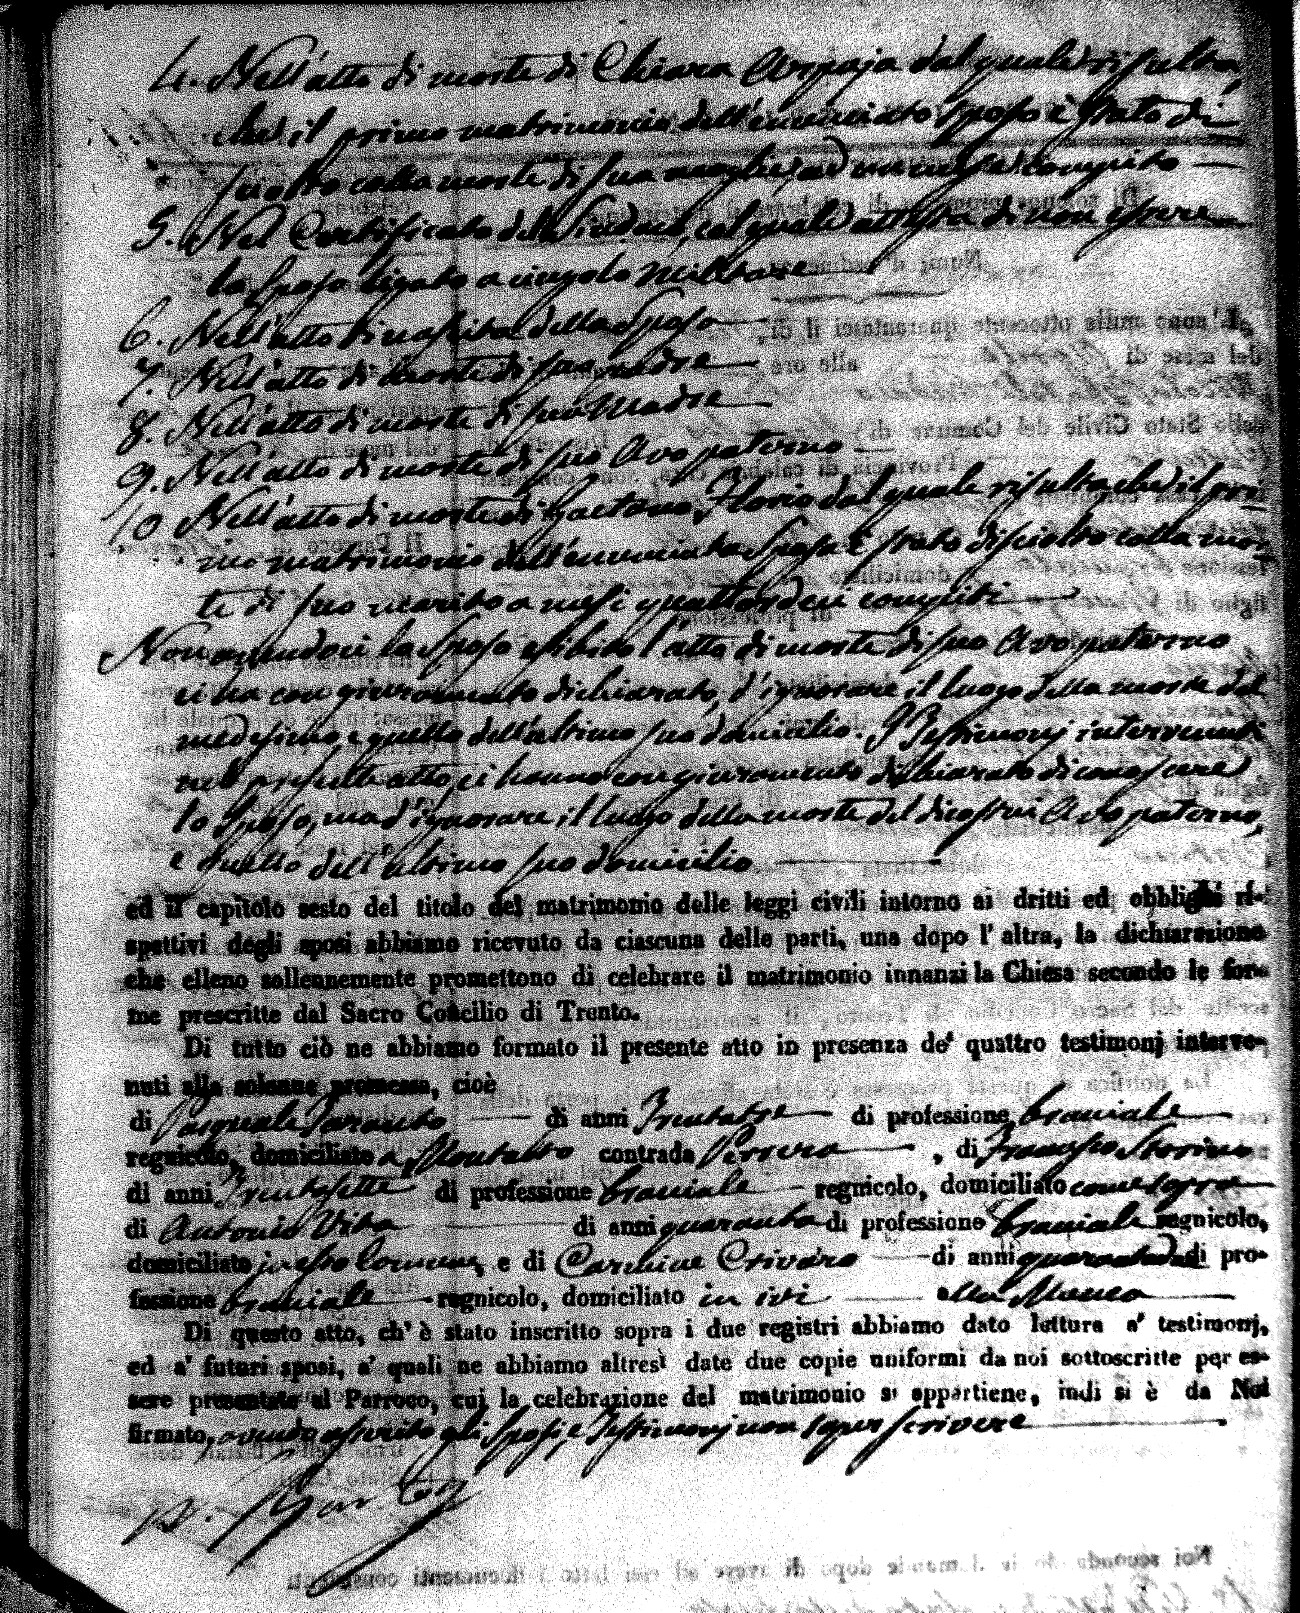 4. Nell'atto di morte di Chiara Arspaja dal quale risulta,
che il primo matrimonio dell'enunciato Sposo è stato di
sciolto colla morte di sua moglie, ad un mese compito
5. Nel Certificato del Sindaco, col quale attesta di non essere
lo Sposo ligato a cingolo Militare
6. Nell'atto di nascita della Sposa
7. Nell'atto di morte di suo padre
8. Nell'atto di morte di sua Madre
9. Nell'atto di morte di suo Avo paterno
10 Nell'atto di morte di Gaetano Florio dal quale risulta, che il pri
mo matrimonio dell'enunciata Sposa è stato disciolto colla mor
te di suo marito a mesi quattordeci compiti
Non avendoci lo Sposo esibito l'atto di morte di suo Avo paterno
ci ha con giuramento dichiarato, d'ignorare il luogo della morte del
medesimo, e quello dell'ultimo suo domicilio. I Testimonj intervenuti
nel presente atto, ci hanno con giuramento dichiarato di conoscere
lo Sposo, ma d'ignorare, il luogo della morte del dicostui Avo paterno,
e quello dell'ultimo suo domicilio
ed il capitolo sesto del titolo del matrimonio delle leggi civili intorno ai dritti ed obblighi ri-
spettivi degli sposi abbiamo ricevuto da ciascuna delle parti, una dopo l'altra, la dichiarazione
che elleno sollennemente promettono di celebrare il matrimonio innanzi la Chiesa secondo le for-
me prescritte dal Sacro Concilio di Trento.
Di tutto ciò ne abbiamo formato il presente atto in presenza de' quattro testimonj interve-
nuti alla solenne promessa, cioè
di Pasquale Taranto di anni Trentatre di professione bracciale
regnicolo, domiciliato a Montalto contrada Perrera, di Francesco Storino
di anni Trentasette di professione bracciale regnicolo, domiciliato come sopra
di Antonio Vita di anni quaranta di professione bracciale regnicolo,
domiciliato in esso Comune, e di Carmine Crivaro di anni quaranta di pro-
fessione bracciale regnicolo, domiciliato in ivi alla Manca
Di questo atto, ch'è stato inscritto sopra i due registri abbiamo dato lettura a' testimonj,
ed a' futuri sposi, a' quali ne abbiamo altresì date due copie uniformi da noi sottoscritte per es-
sere presentate al Parroco, cui la celebrazione del matrimonio si appartiene, indi si è da Noi
firmato, avendo asserito gli Sposi, e Testimonj non saper scrivere